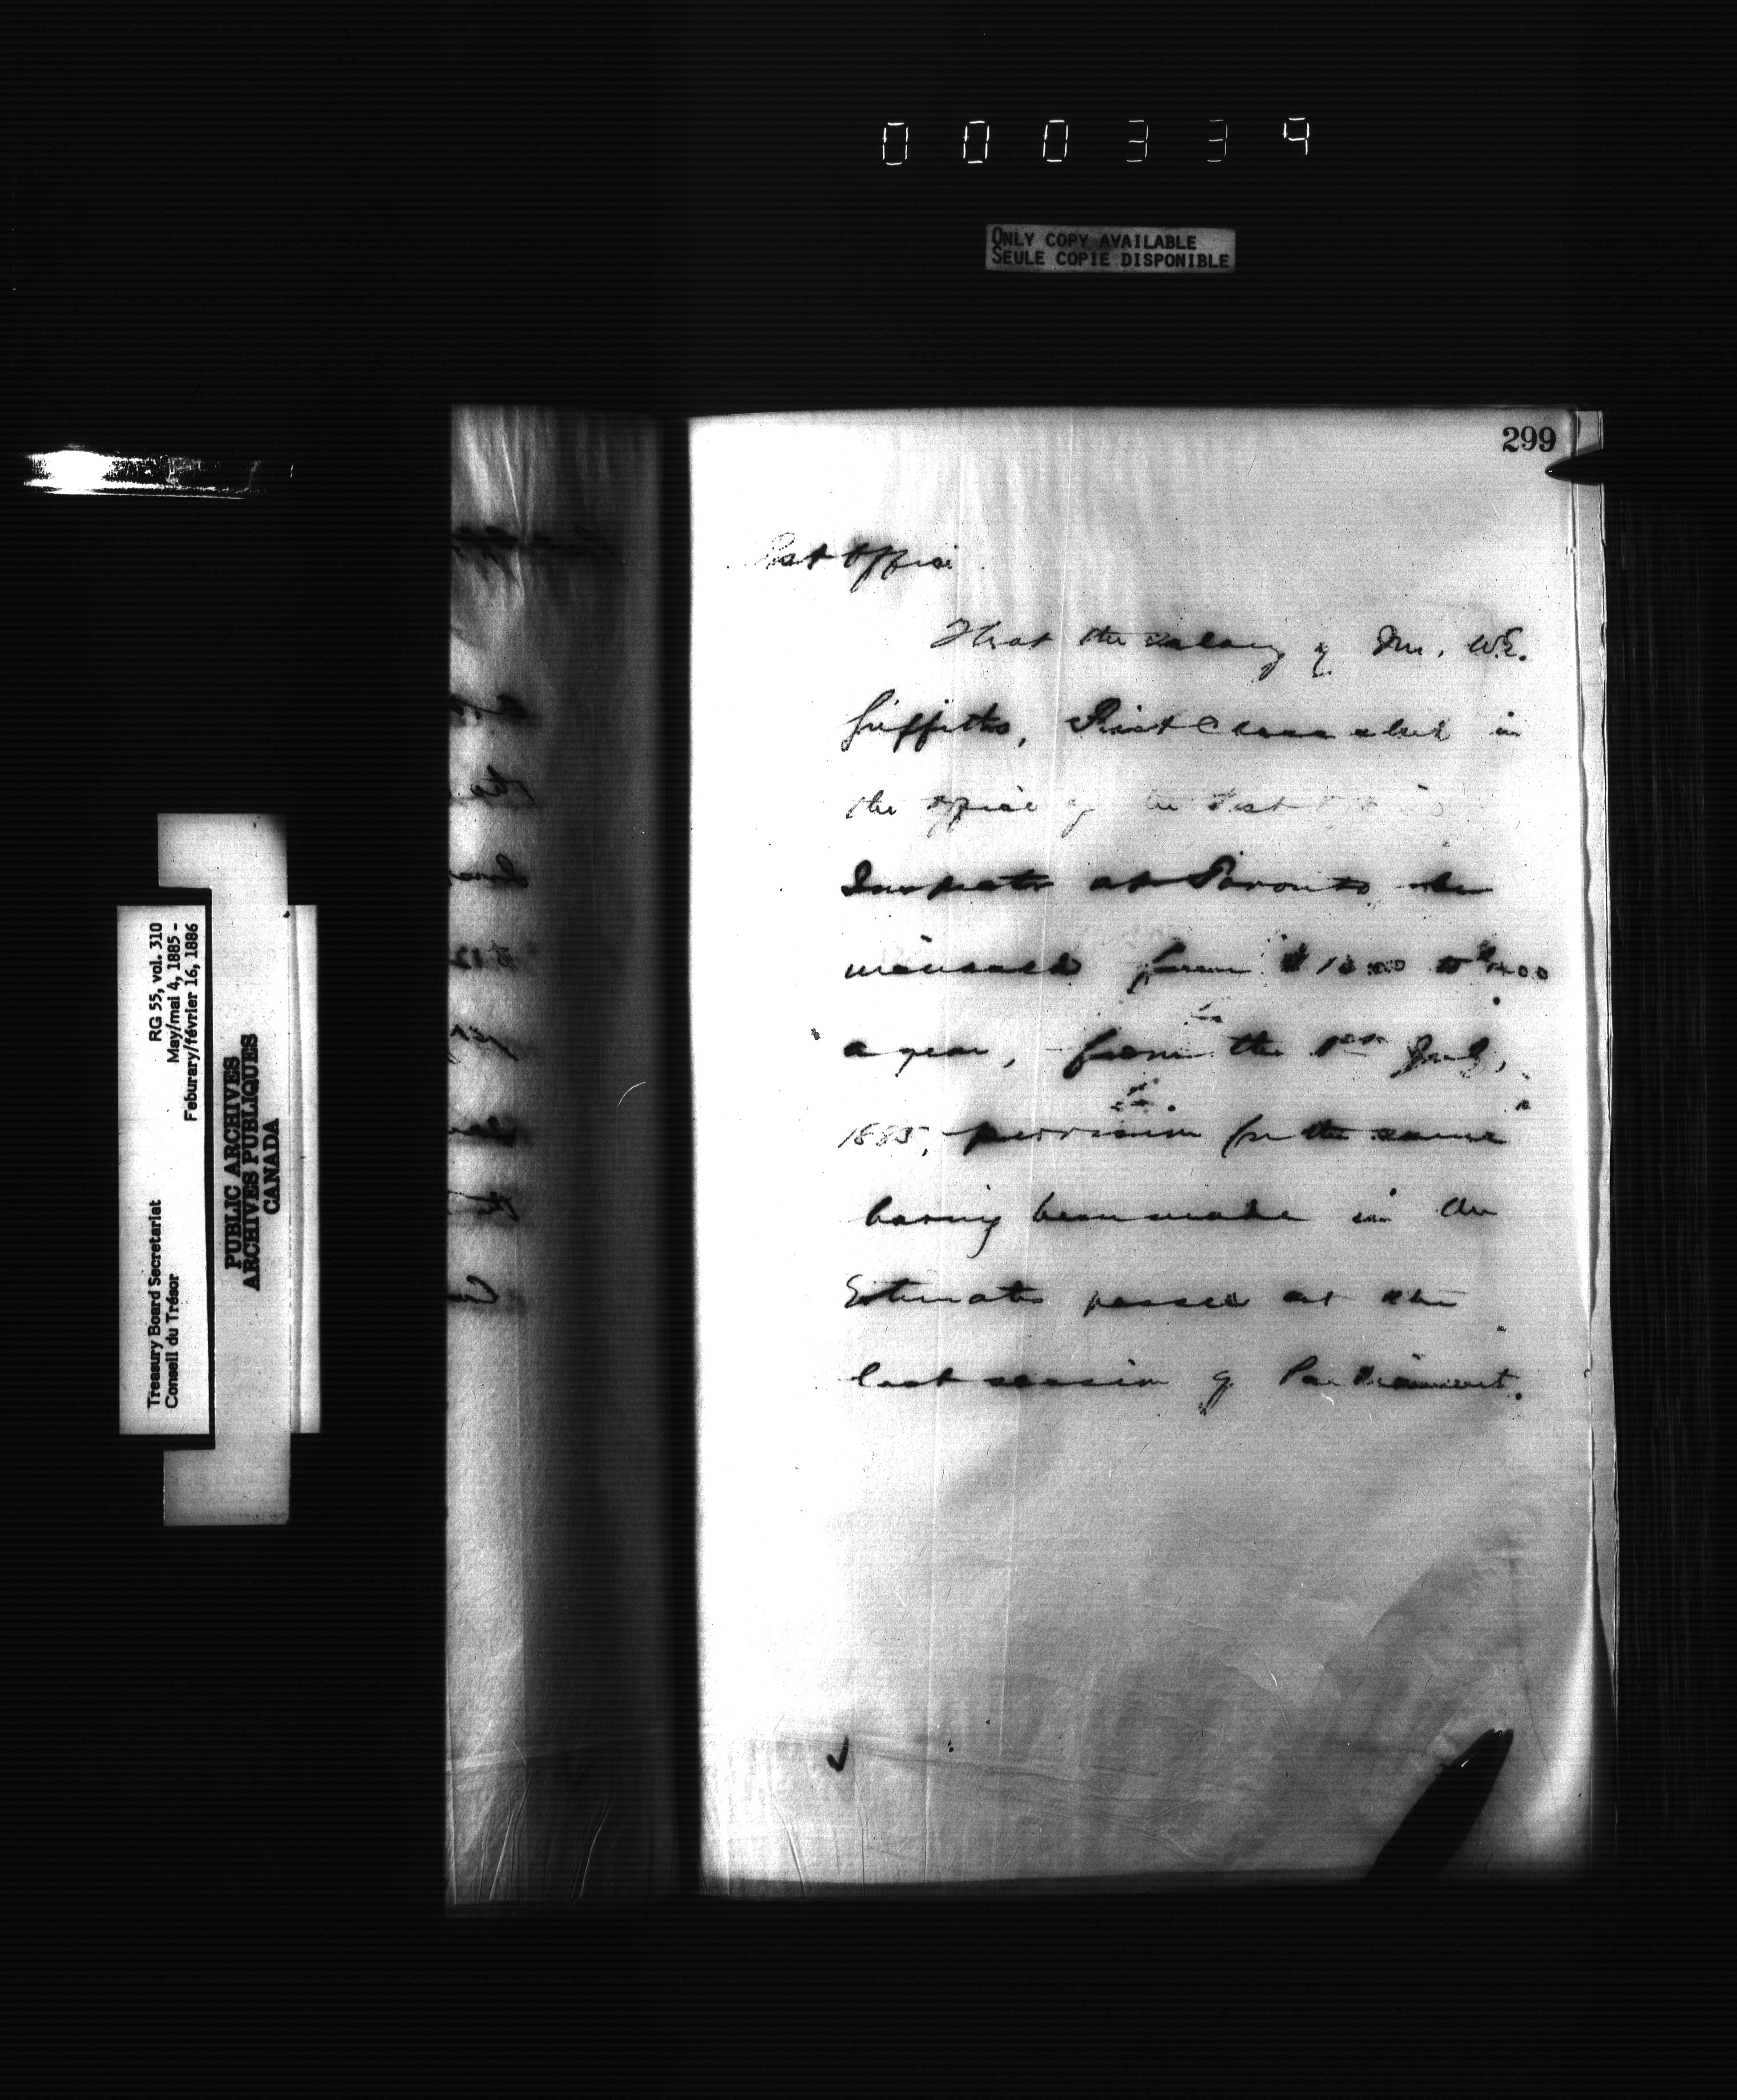 000339
ONLY COPY AVAILABLE
SEULE COPIE DISPONIBLE
299
Post Office
That the salary of Mr. W.E.
Griffiths, First Class clerk in
the office of the Post Office
Inspector at Toronto be
increased from to $1400
a year, from the 1st July,
1885, provision for the same
having been made in the
Estimates passed at the
last session of Parliament.
Treasury Board Secretariat RG 55, vol. 310
Conseil du Trésor May/mai 4, 1885 -
Feburary/février 16, 1886
PUBLIC ARCHIVES
ARCHIVES PUBLIQUES
CANADA